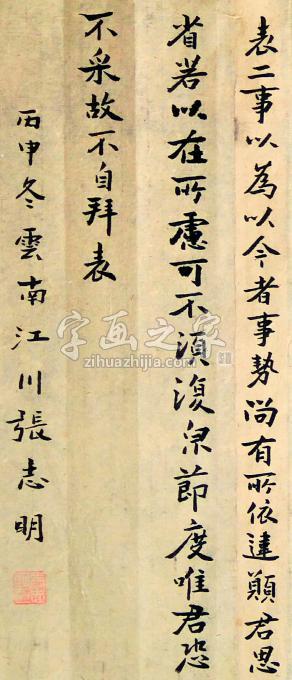 表二事以為以今者事勢尚有所依違願君思
省若以在所慮可不須復節度唯君恐
不采故不自拜表
丙申冬雲南江川張志明
字画之家
zihuazhijia.com